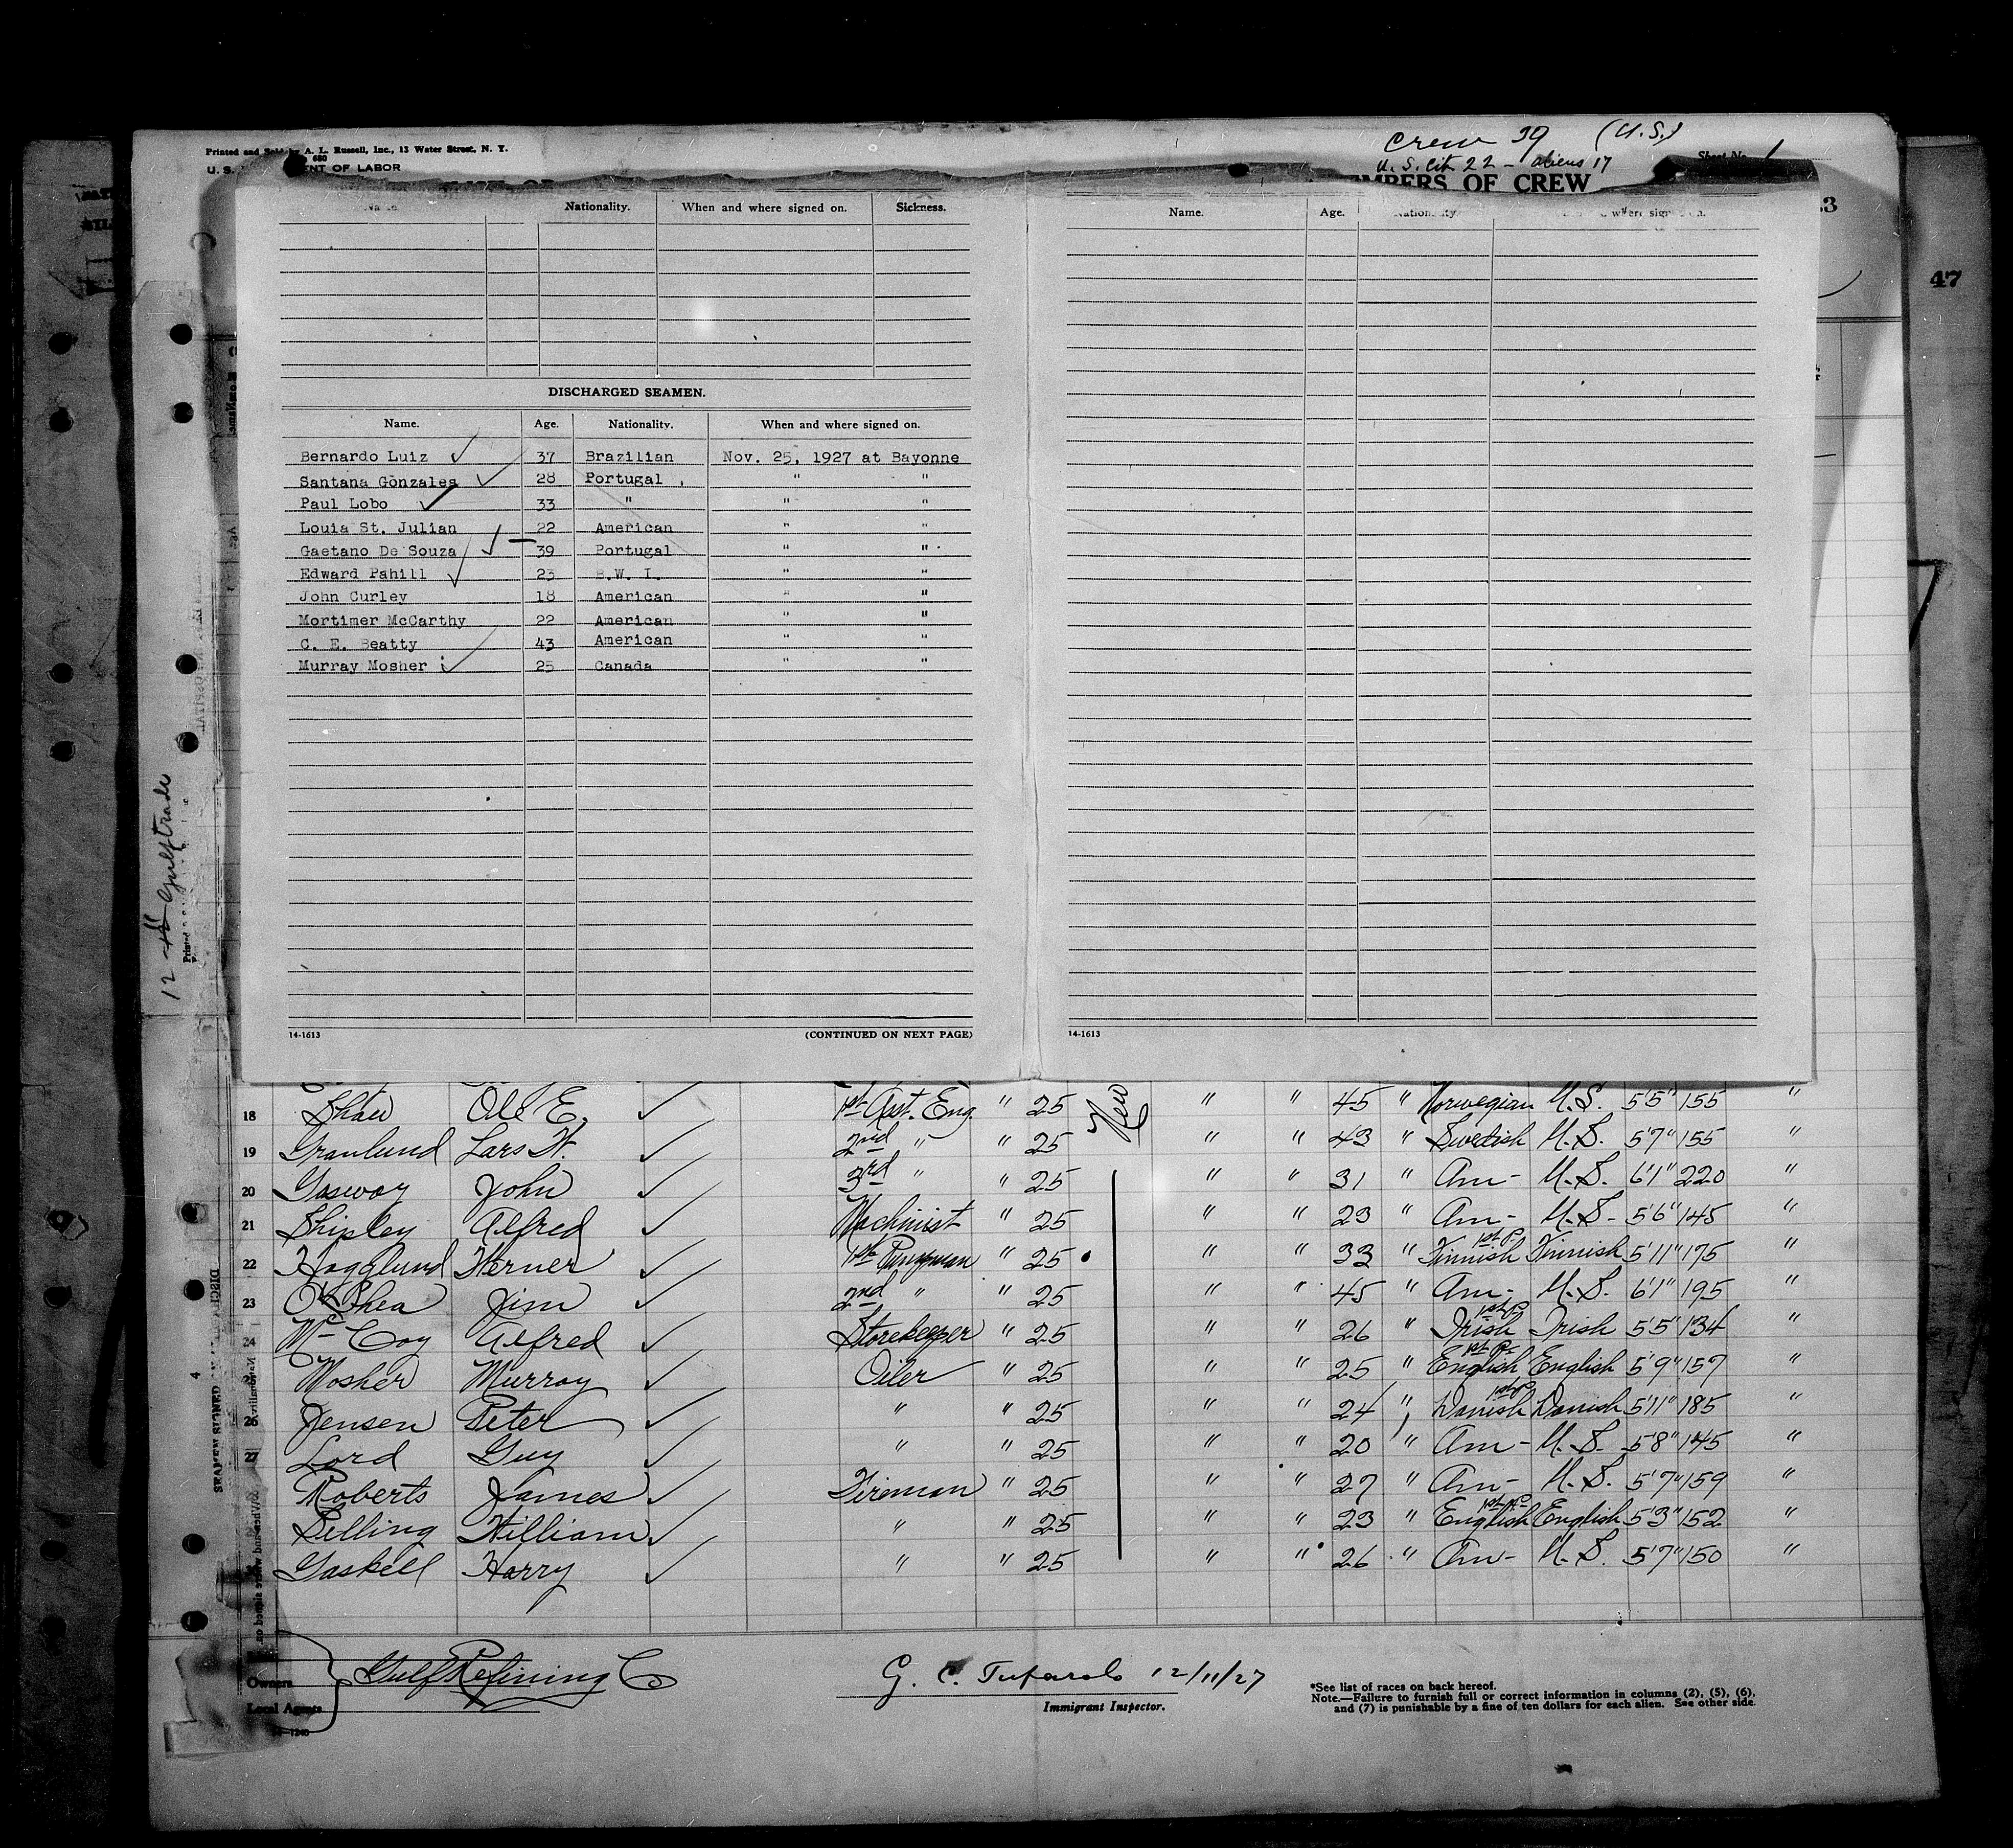 Printed and Sold by A. L. Russell, Inc., 13 Water Street, N. Y.
680
U. S. DEPARTMENT OF LABOR
Crew 39 (U.S.)
U. S. Cit 22 - aliens 17
Sheet No. 1
MEMBERS OF CREW
47
Nationality. When and where signed on. Sickness.
Name. Age. Nationality. where signed on.
DISCHARGED SEAMEN.
Name. Age. Nationality. When and where signed on.
Bernardo Luiz ✓ 37 Brazilian Nov. 25, 1927 at Bayonne
Santana Gonzales ✓ 28 Portugal " "
Paul Lobo ✓ 33 " " "
Louia St. Julian 22 American " "
Gaetano De Souza ✓ 39 Portugal " "
Edward Pahill ✓ 23 B.W. I. " "
John Curley 18 American " "
Mortimer McCarthy 22 American " "
C. E. Beatty 43 American " "
Murray Mosher ✓ 25 Canada " "
14-1613 (CONTINUED ON NEXT PAGE)
14-1613
12 Gulftrade
18 Shaw Ole E. ✓ 1st Asst. Eng " 25 New " " 45 " Norwegian U.S. 5'5" 155 "
19 Granlund Lars W. ✓ 2nd " " 25 " " 43 " Swedish U.S. 5'7" 155 "
20 Gasway John ✓ 3rd " " 25 " " 31 " Am- U.S. 6'1" 220 "
21 Shipley Alfred ✓ Machinist " 25 " " 23 " Am- U.S- 5'6" 145 "
22 Hagglund Werner ✓ 1st Pumpman " 25 " " 33 " 1st P. Finnish Finnish 5'11" 175 "
23 O'Shea Jim ✓ 2nd " " 25 " " 45 " Am- U.S. 6'1" 195 "
24 McCoy Alfred ✓ Storekeeper " 25 " " 26 " 1st P Irish Irish 5'5" 134 "
Mosher Murray ✓ Oiler " 25 " " 25 " 1st P. English English 5'9" 157 "
26 Jensen Peter ✓ " " 25 " " 24 " 1st P Danish Danish 5'11" 185 "
27 Lord Guy ✓ " " 25 " " 20 " Am- U.S. 5'8" 145 "
Roberts James ✓ Fireman " 25 " " 27 " Am- U.S. 5'7" 159 "
Selling William ✓ " " 25 " " 23 " 1st P English English 5'3" 152 "
Gaskell Harry ✓ " " 25 " " 26 " Am- U.S. 5'7" 150 "
Owners Gulf Refining Co
Local Agents
G. C. Tufarolo 12/11/27
Immigrant Inspector.
*See list of races on back hereof.
Note.—Failure to furnish full or correct information in columns (2), (5), (6),
and (7) is punishable by a fine of ten dollars for each alien. See other side.